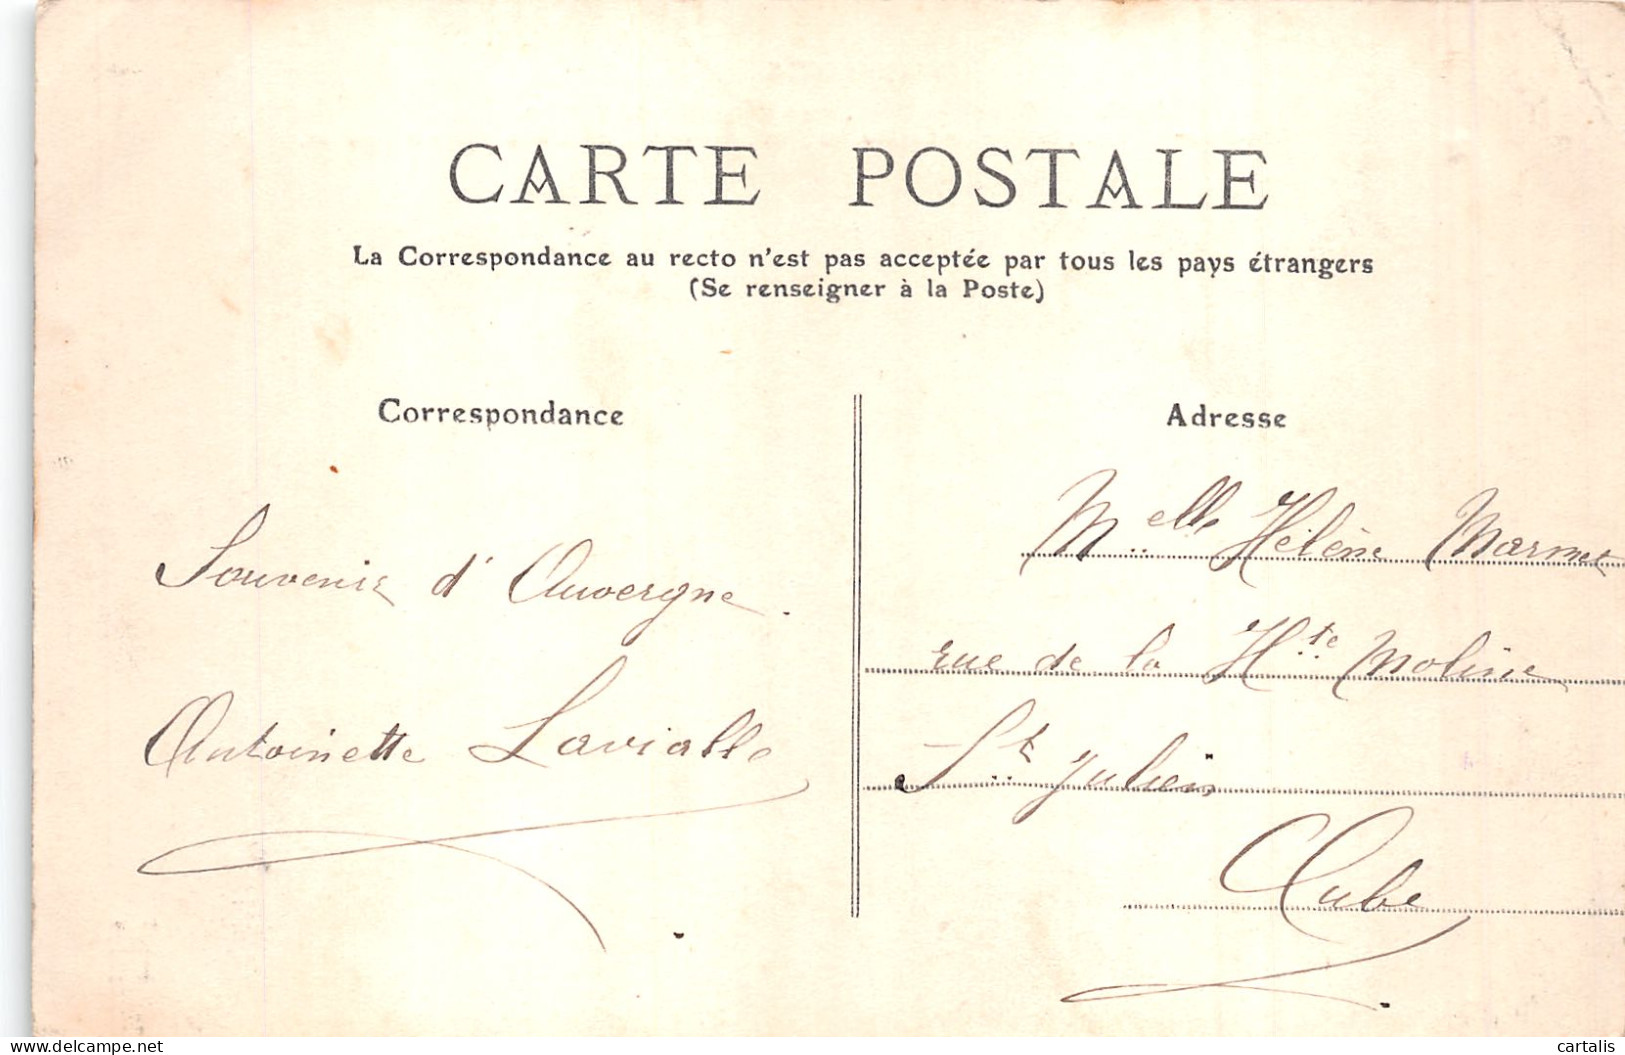 CARTE POSTALE
La Correspondance au recto n'est pas acceptée par tous les pays étrangers
(Se renseigner à la Poste)
Correspondance
Souvenir d'Auvergne.
Antoinette Lavialle
Adresse
Melle Hélène Marmet
rue de la Hte Moline
St Julien
Aube
www.delcampe.net
cartalis